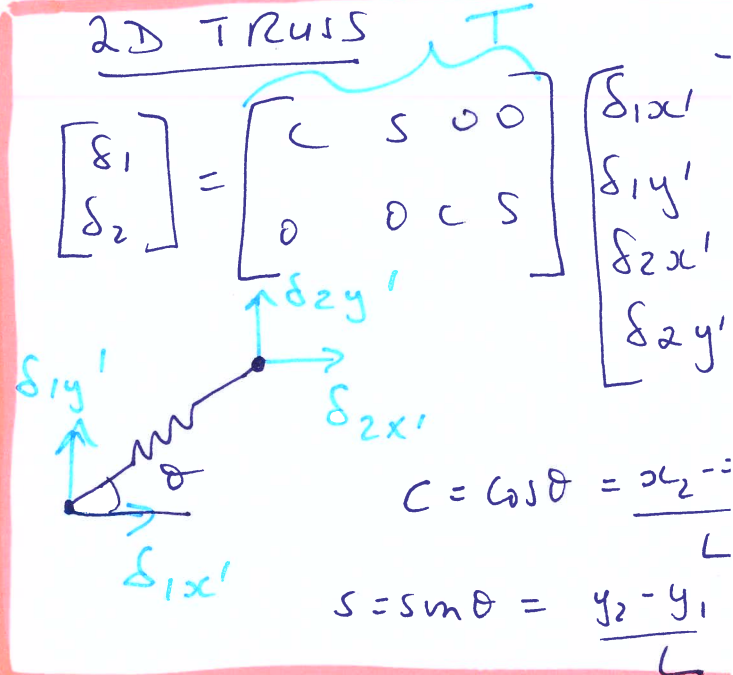 2D TRUSS
T
[δ1 δ2] = [C S 0 0 0 0 C S] [δ1x' δ1y' δ2x' δ2y'
δ2y'
δ1y'
δ2x'
θ
δ1x'
C = Cosθ = x2 -
L
S = Sinθ = y2 - y1
L